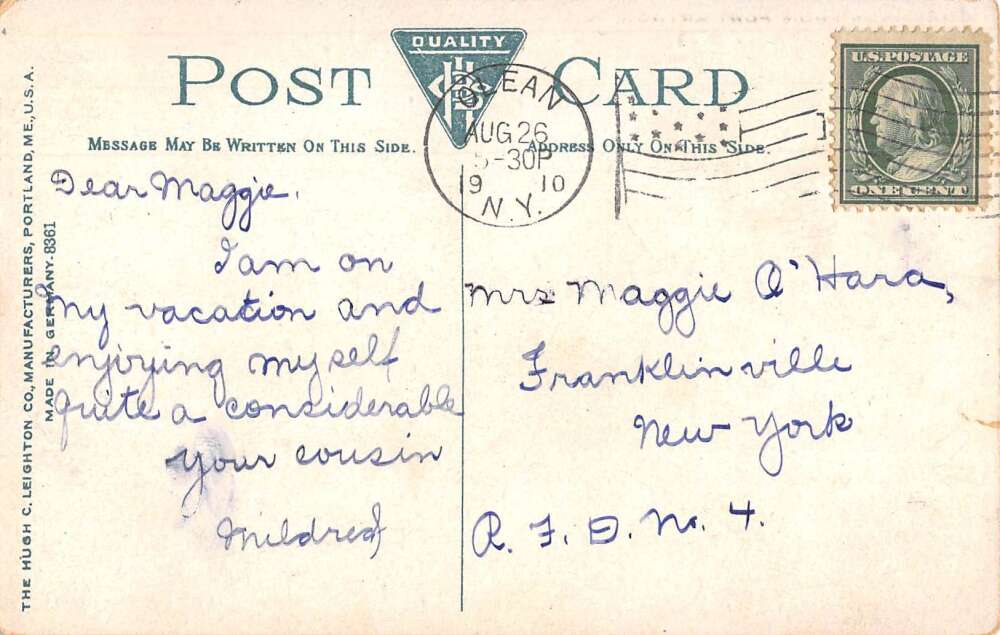 QUALITY
POST CARD
MESSAGE MAY BE WRITTEN ON THIS SIDE.
ADDRESS ONLY ON THIS SIDE.
OLEAN
AUG 26
5-30P
19 10
N.Y.
U.S. POSTAGE
ONE CENT
THE HUGH C. LEIGHTON CO., MANUFACTURERS, PORTLAND, ME., U.S.A.
MADE IN GERMANY. 8361
Dear Maggie.
I am on
my vacation and
enjoying myself
quite a considerable
your cousin
Mildred
Mrs Maggie O'Hara,
Franklinville
New York
R. F. D. No. 4.